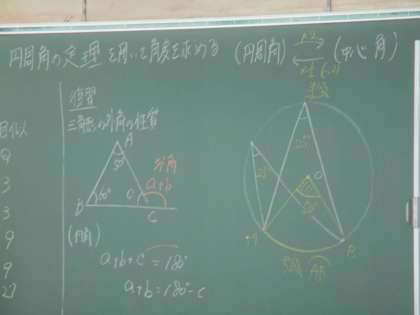 円周角の定理を用いて角度を求める (円周角) (中心角)
×2
復習
三角形の外角の性質
A
50°
外角
a+b
B
60°
C
(内角)
a+b+c=180°
a+b=180°-c
9
3
3
9
9
27
25°
O
A
B